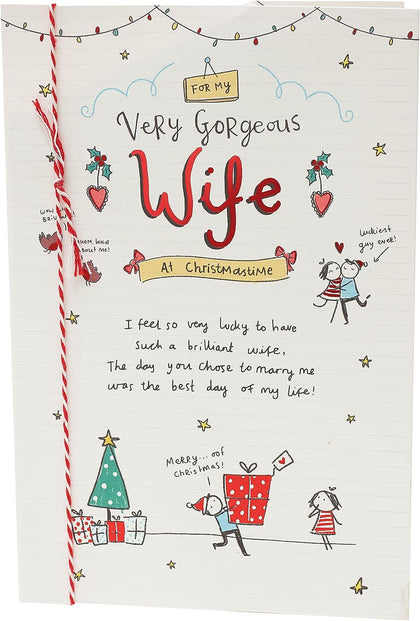 FOR MY
Very Gorgeous
Wife
At Christmastime
luckiest
guy ever!
WHAT
ABOUT ME?
I feel so very lucky to have
such a brilliant wife,
The day you chose to marry me
was the best day of my life!
Merry...oof
Christmas!